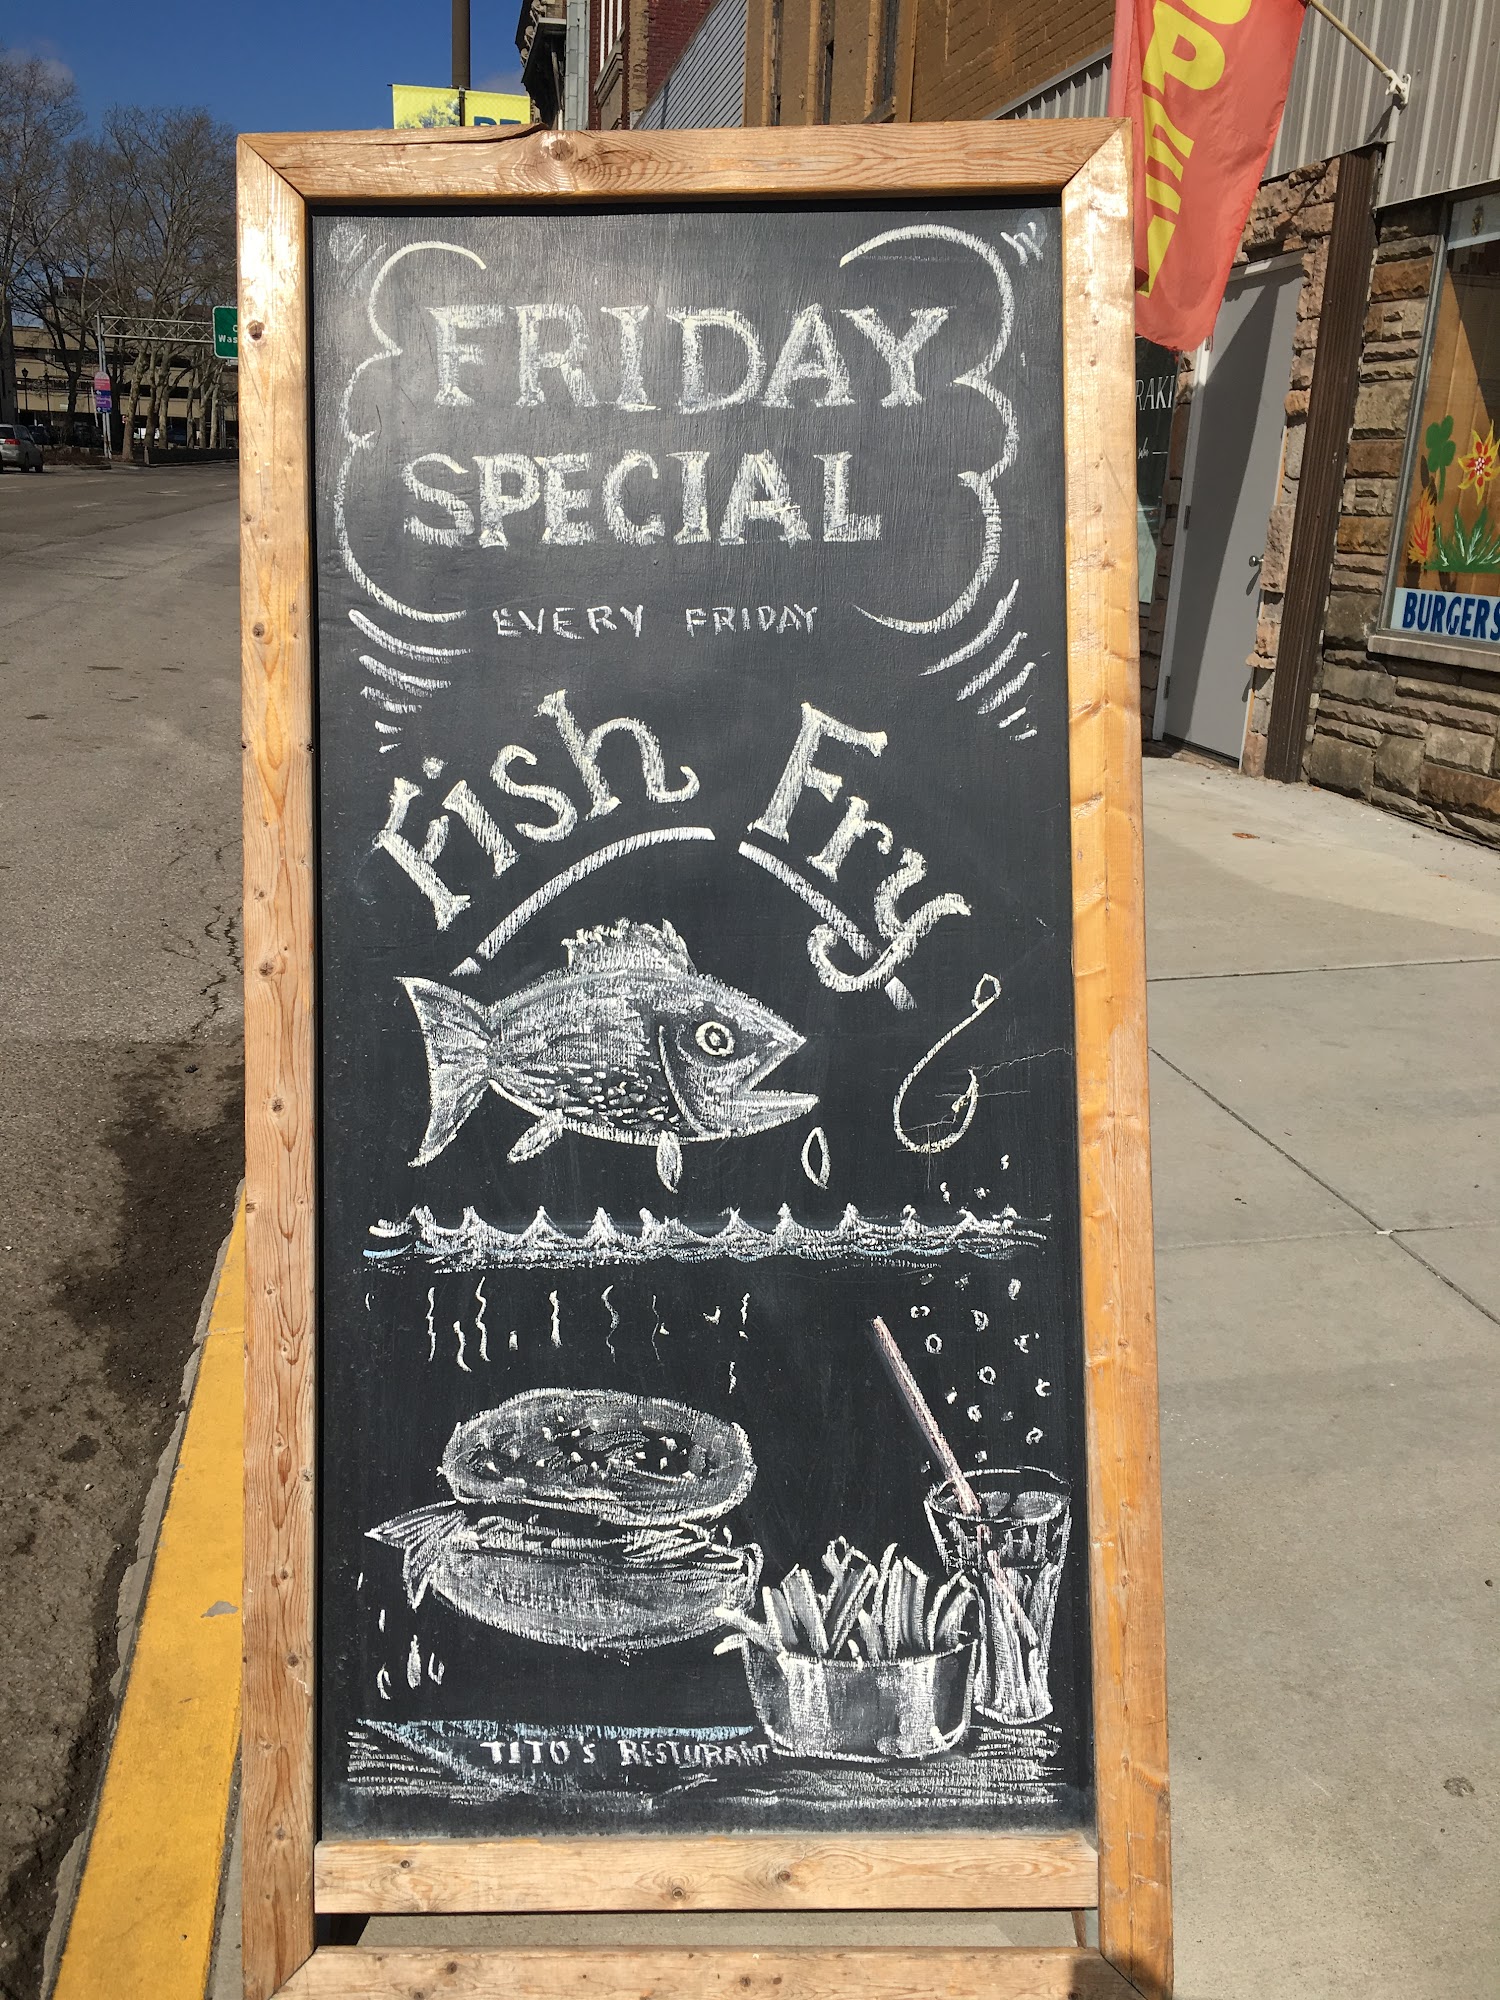 FRIDAY
SPECIAL
EVERY FRIDAY
Fish Fry
TITO'S RESTURANT
BURGERS
RAKI
Was